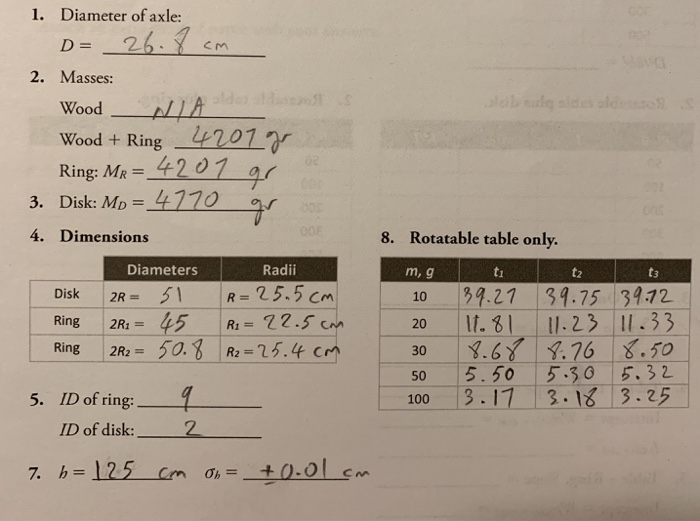 1. Diameter of axle:
D = 26.8 cm
2. Masses:
Wood N/A
Wood + Ring 4207 gr
Ring: MR = 4207 gr
3. Disk: MD = 4770 gr
4. Dimensions
Diameters Radii
Disk 2R = 51 R = 25.5 cm
Ring 2R1 = 45 R1 = 22.5 cm
Ring 2R2 = 50.8 R2 = 25.4 cm
5. ID of ring: 9
ID of disk: 2
7. h = 125 cm σh = ±0.01 cm
8. Rotatable table only.
m, g t1 t2 t3
10 39.27 39.75 39.72
20 11.81 11.23 11.33
30 8.68 8.76 8.50
50 5.50 5.30 5.32
100 3.17 3.18 3.25